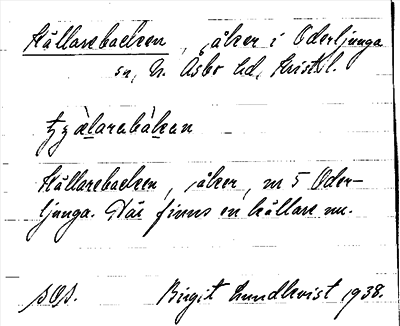 Källarebacken, åker i Oderljunga
sn, N. Åsbo hd, Kristl.
Källarebacken, åker, nr 5 Oder-
ljunga. Där finns en källare nu.
SOS. Birgit Lundkvist 1938.